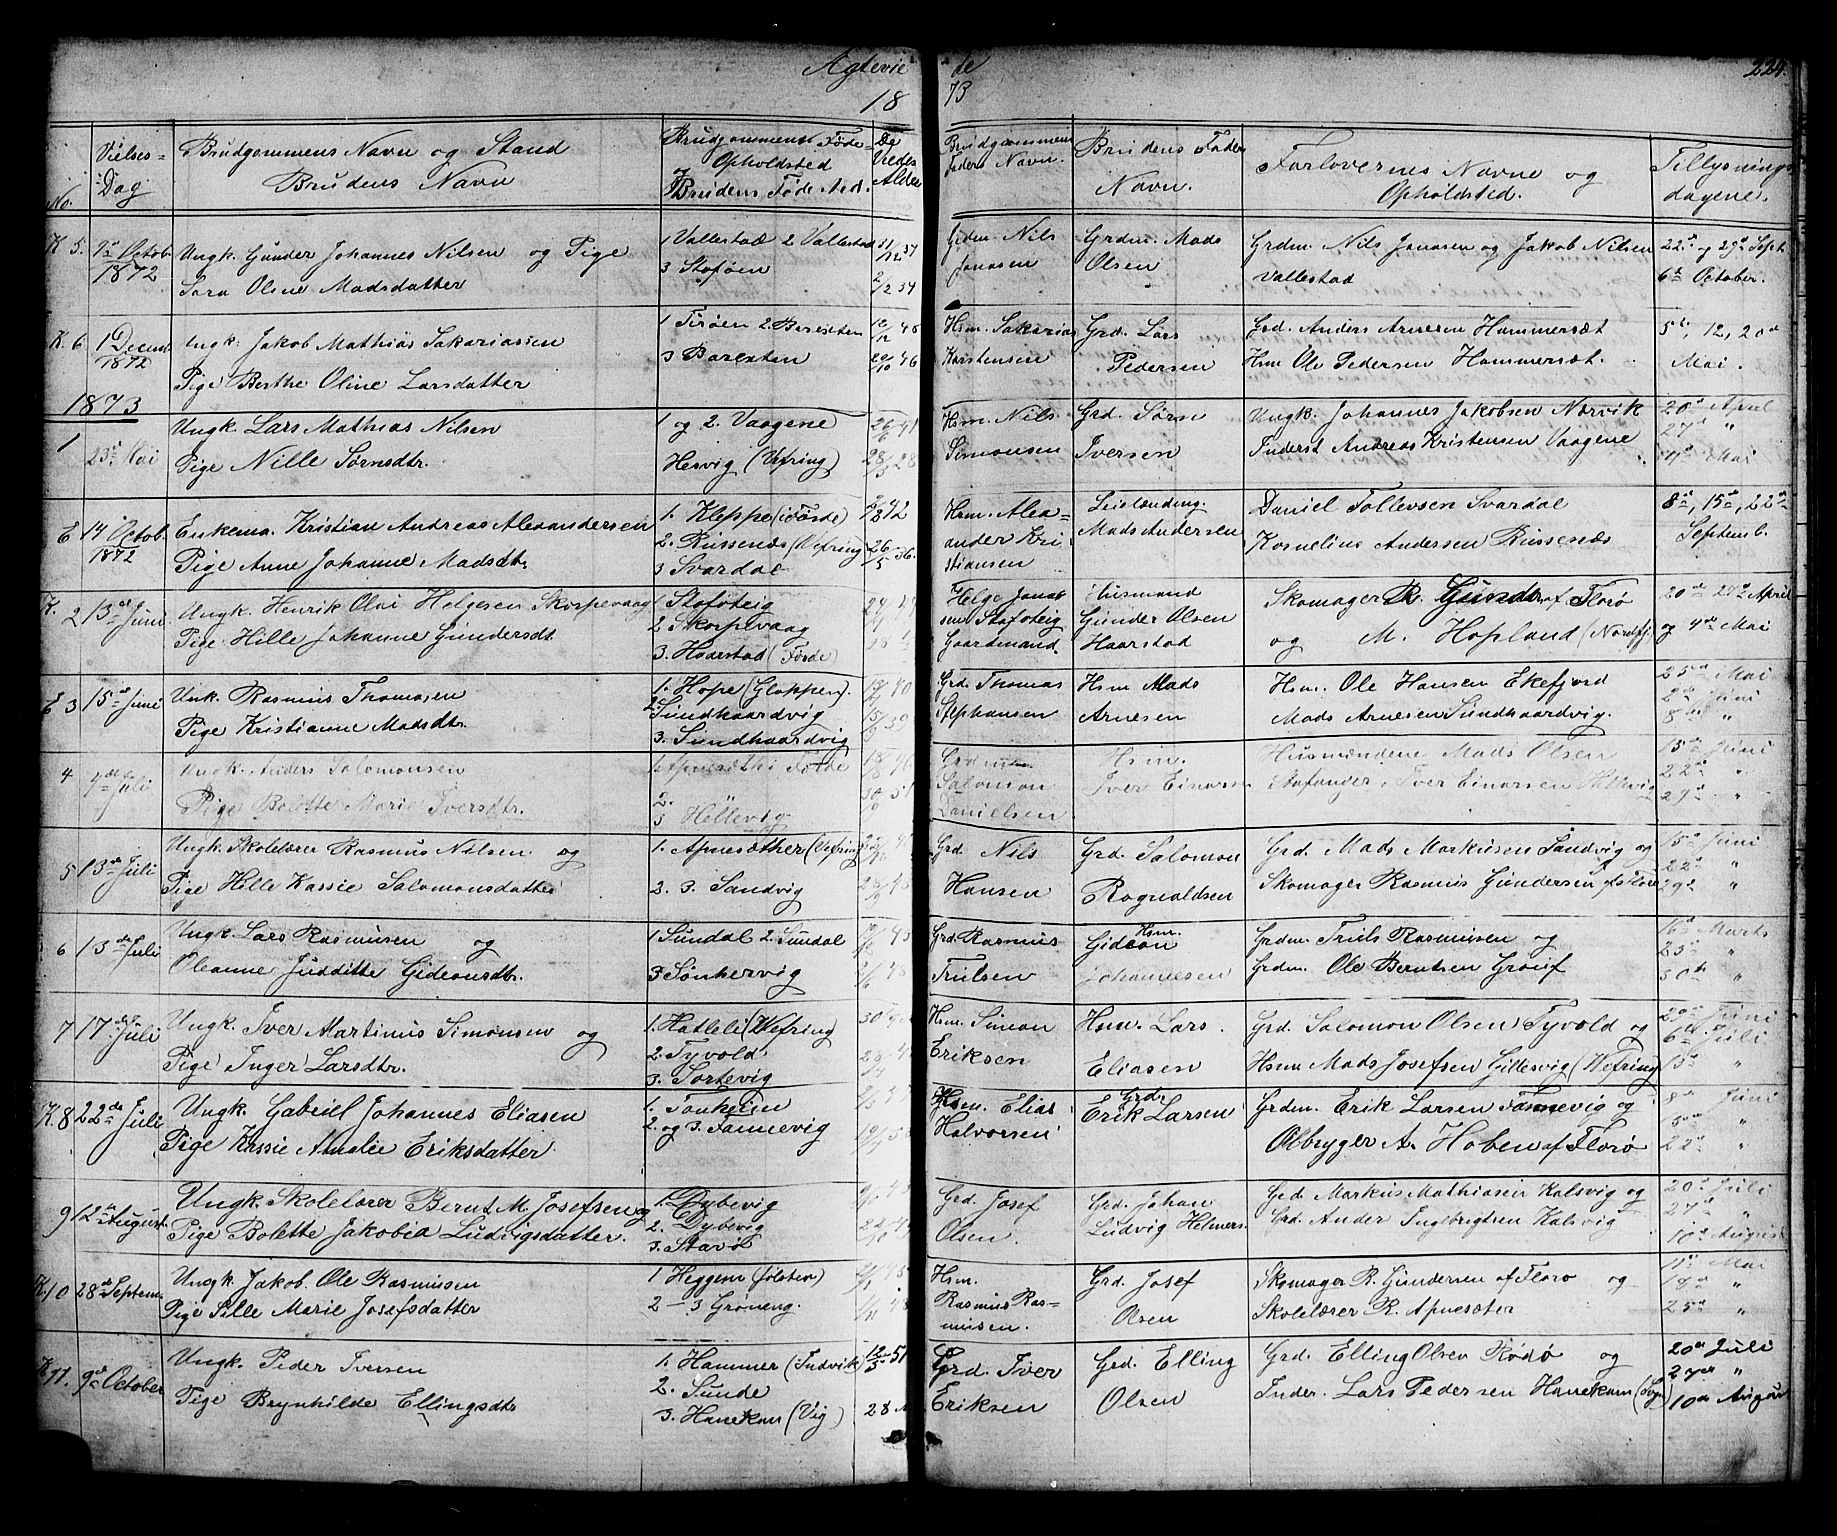 Ægtevie de 224.
18 73
No.
Vielses-Dag
Brudgommens Navn og Stand
Brudens Navn
Brudgommens Føde
Opholdsted
Brudens Føde
De Viedes Alder
Brudgommens Faders Navn.
Brudens Fader Navn.
Forlovernes Navne og Opholdsted.
Tillysningsdagene.
K 5. October 1872
Ungk. Gunder Johannes Nilsen og Pige
Sara Oline Madsdatter
1 Vallestad 2 Vallestad
3 Stoføen
Grdm. Nils Jonasen
Grdm. Mads Olsen
Grdm. Nils Jonasen og Jakob Nilsen
Vallestad
22de og 29de Sept
6te October.
K. 6 1 Decemb 1872
Ungk. Jakob Mathias Sakariassen
Pige Berthe Oline Larsdatter
3 Barexten
29/10 46
Hsm. Sakarias Karstensen
Grd. Lars Pedersen
Grd. Anders Arnesen Hammersæt
Hsm Ole Pedersen Hammersæt.
5te, 12, 20de
Mai.
1873
1 23de Mai
Ungk. Lars Mathias Nilsen
Pige Nille Sørnsdtr.
1 og 2. Vaagene
Hesvig (Vefring)
Hsm. Nils Simonsen
Grd. Sørn Iversen
Ungk. Johannes Jakobsen Nærvik
Inderst Andreas Kristensen Vaagene
20de April
27de "
Mai
E 14 Octob. 1872
Enkema. Kristian Andreas Alexandersen
Pige Anne Johanne Madsdt.
1. Kleppe (i Førde)
2. Russenæs (Vefring)
3 Svardal
26/5 36.
Hsm. Alexander Kristiansen
Leilænding. Mads Andersen
Daniel Tollevsen Svardal
Kornelius Andersen Russenæs
8de, 15de, 22de
Septemb.
K. 2 13de Juni
Ungk. Henrik Olai Helgesen Skorpevaag
Pige Hille Johanne Gundersdt.
1. Stafoteig
2 Skorpevaag
3. Haarstad (Førde)
Helge Jonasen Stafoteig Gaardmand.
Husmand Gunder Olsen Haarstad
Skomager R. Gunders. af Florø
og M. Hopland (Nordfj.)
20de 27de April
og 4de Mai
E 3 15de Juni
Unk. Rasmus Thomasen
Pige Kristianne Madsdtr.
1. Hope (Gloppen).
2. Sundhaardvig
3. Sundhaardvig
Grd. Thomas Stephansen
Hsm Mads Arnesen
Hsm. Ole Hansen Ekefjord
Mads Arnesen Sundhaardvig.
25de Mai
2de Juni
8de "
4 4de Juli
Ungk. Anders Salomonsen
Pige Bolette Marie Iversdtr.
1. Apnesæth i Førde
2.
3 Hellevig
Grdm Salomon Danielsen
Hsm. Iver Einarsen
Husmændene Mads Olsen
Stafanger, Iver Einarsen Hellevig
15de Juni
22de "
29de "
5 13de Juli
Ungk. Skolelærer Rasmus Nilsen og
Pige Hille Kassie Salomonsdatter
1. Apnesæther (Vefring)
2. 3. Sandvig
Grd. Nils Hansen
Grd. Salomon Rognaldsen
Grd. Mads Markusen Sandvig og
Skomager Rasmus Gundersen af Florø
15de Juni
22de "
29de "
6 13de Juli
Ungk. Lars Rasmusen og
Oleanne Judditte Gideonsdtr.
1 Sundal 2. Sundal
3 Sønhervig
Grd. Rasmus Trulsen
Hsm. Gideon Johannesen
Grdm. Truls Rasmusen og
Grdm. Ole Berntsen
16de Marts
23de "
30de "
7 17de Juli
Ungk. Iver Martinus Simonsen og
Pige Inger Larsdtr.
1. Hatleli (Vefring)
2. Tyvold
3. Sortevig
Hsm. Simon Eriksen
Hsm. Lars Eliasen
Grd. Salomon Olsen Tyvold og
Hsm Mads Josefsen Gillesvig (Vefring)
Juni
6te Juli
13de "
K. 8 22de Juli
Ungk. Gabriel Johannes Eliasen
Pige Kassie Amalie Eriksdatter
1. Tonheim
2. og 3. Fannevig
Hsm. Elias Halvorsen
Grdr Erik Larsen
Grdm. Erik Larsen Fannevig og
Ølbryger A. Hoben af Florø
8de Juni
"
22de "
9 12te August
Ungk. Skolelærer Bernt M. Josefsen og
Pige Bolette Jakobia Ludvigsdatter.
1. Dybevig
2. Dybevig
3. Stavø
Grd. Josef Olsen.
Grd. Johan Ludvig Helmers.
Grd. Markus Mathiasen Kalsvig og
Grd. Ander Ingebrigtsen Kalsvig
20de Juli
27de "
10de August
K. 10 28de Septem.
Ungk. Jakob Ole Rasmusen
Pige Sille Marie Josefsdatter
1 Heggem (Jølster)
2 - 3 Grøneng.
Hsm. Rasmus Rasmusen.
Grd. Josef Olsen
Skomager R. Gundersen af Florø og
Skolelærer R. Apnesæter
11de Mai
18de "
25de "
K. 11. 9de October
Ungk. Peder Iversen
Pige Brynhilde Ellingsdtr
1. Hammer (Indvik)
2. Sunde
3. Hanekam (Vig)
Grd. Iver Eriksen
Grd. Elling Olsen
Grd. Elling Olsen Rødø og
Inder. Lars Pedersen Hanekam
20de Juli
27de "
10de August